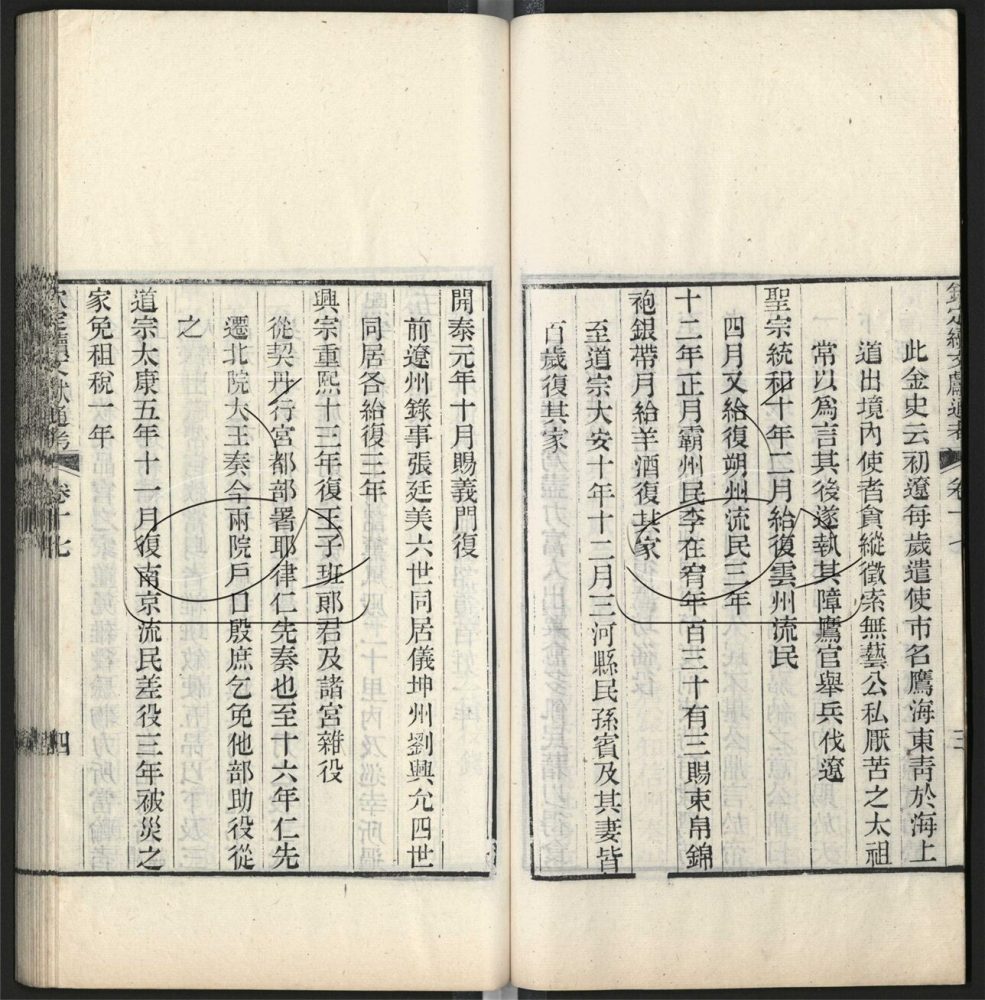 此金史云初遼每歲遣使市名鷹海東青於海上
道出境內使者貪縱徵索無藝公私厭苦之太祖
常以為言其後遂執其障鷹官舉兵伐遼
聖宗統和十年二月給復雲州流民
四月又給復朔州流民三年
十二年正月霸州民李在宥年百三十有三賜束帛錦
袍銀帶月給羊酒復其家
至道宗大安十年十二月三河縣民孫賓及其妻皆
百歲復其家
開泰元年十月賜義門復
前遼州錄事張廷美六世同居儀坤州劉興允四世
同居各給復三年
興宗重熙十三年復王子班郎君及諸宮雜役
從契丹行宮都部署耶律仁先奏也至十六年仁先
遷北院大王奏今兩院戶口殷庶乞免他部助役從
之
道宗太康五年十一月復南京流民差役三年被災之
家免租稅一年
欽定續文獻通考 卷十七 四